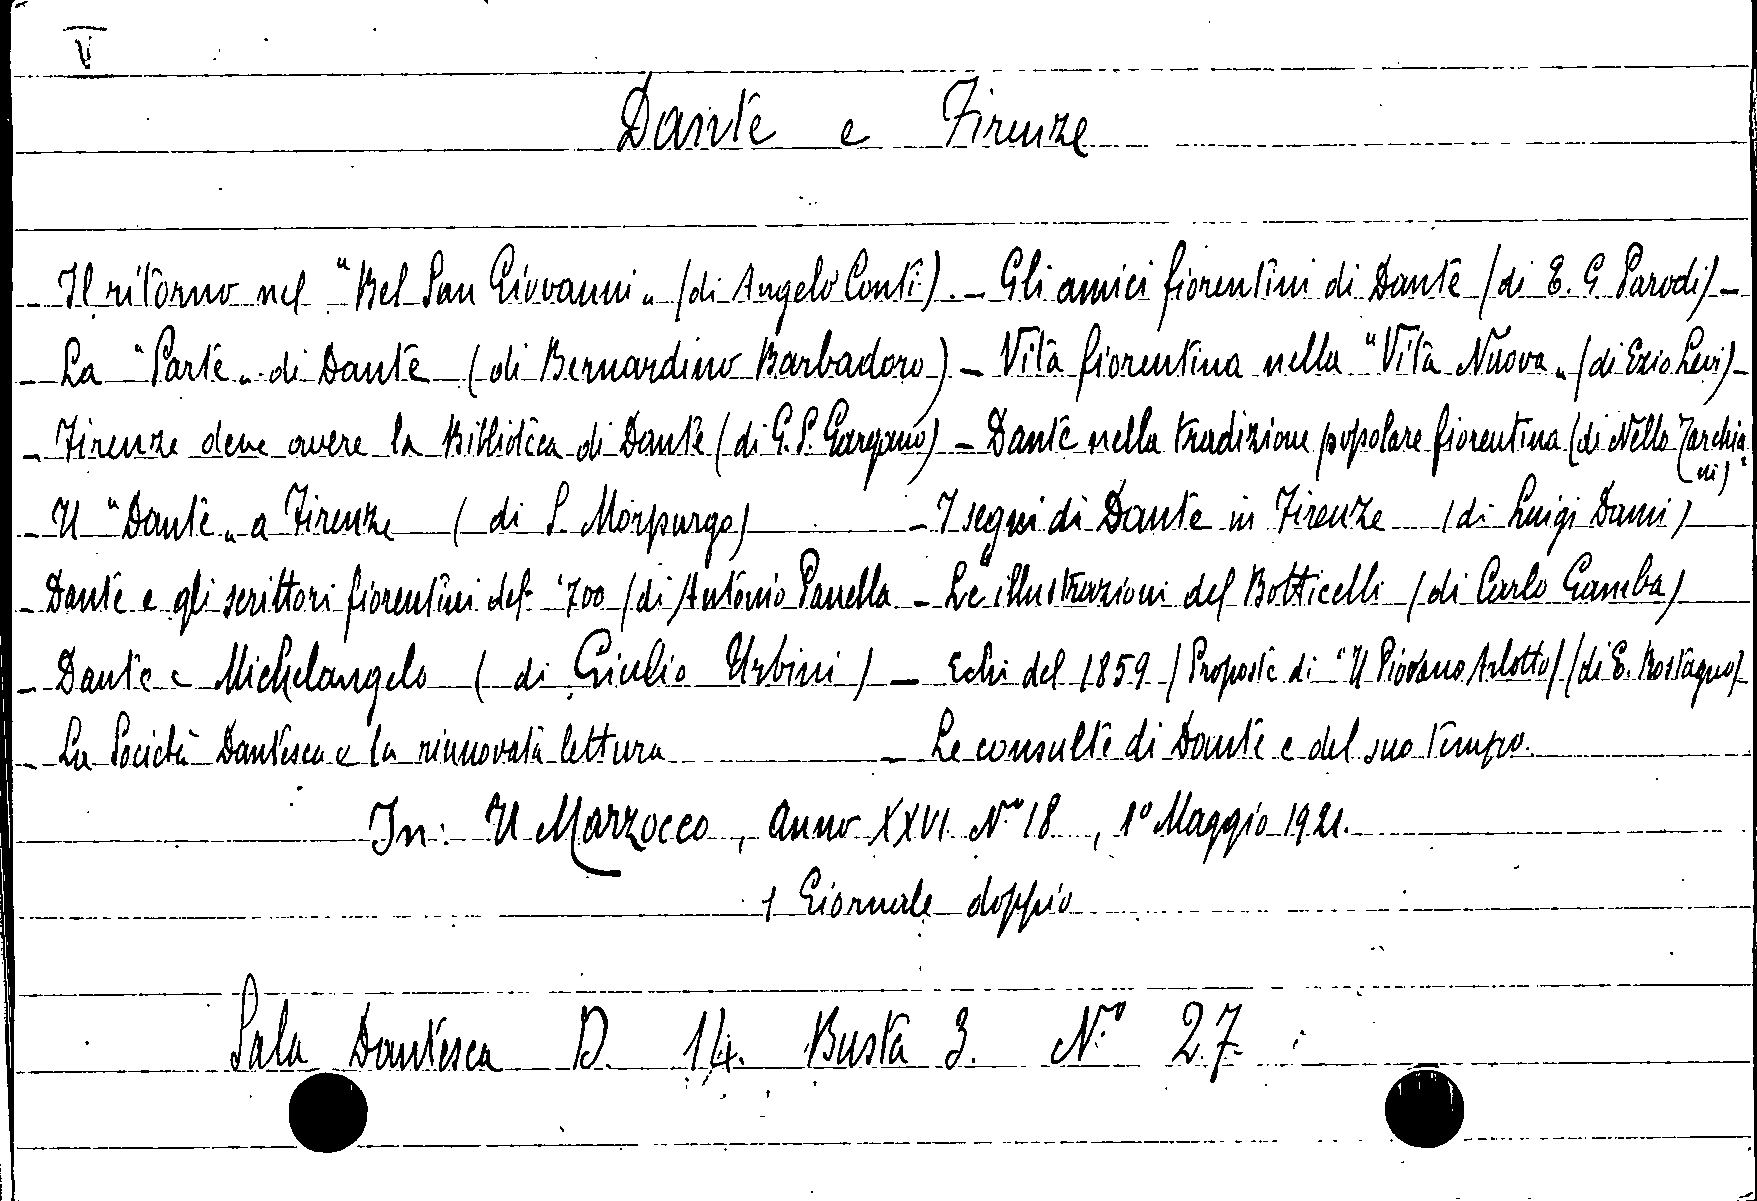 V
Dante e Firenze
- Il ritorno nel "Bel San Giovanni" (di Angelo Conti). - Gli amici fiorentini di Dante (di E. G. Parodi) -
- La "Parte" di Dante (di Bernardino Barbadoro) - Vita fiorentina nella "Vita Nuova" (di Ezio Levi) -
- Firenze deve avere la Biblioteca di Dante (di G. S. Gargano) - Dante nella tradizione popolare fiorentina (di Nello Tarchia-
ni)
- Il "Dante" a Firenze (di S. Morpurgo) - I segni di Dante in Firenze (di Luigi Dami)
- Dante e gli scrittori fiorentini del '700 (di Antonio Panella - Le illustrazioni del Botticelli (di Carlo Gamba)
- Dante e Michelangelo (di Giulio Urbini) - Echi del 1859 (Proposte di "Il Piovano Arlotto) (di E. Rostagno)
- La Società Dantesca e la rinnovata lettura - Le consulte di Dante e del suo tempo.
In: Il Marzocco, Anno XXVI N.º 18, 1º Maggio 1921.
1 Giornale doppio
Sala Dantesca D. 14. Busta 3. N.º 27.